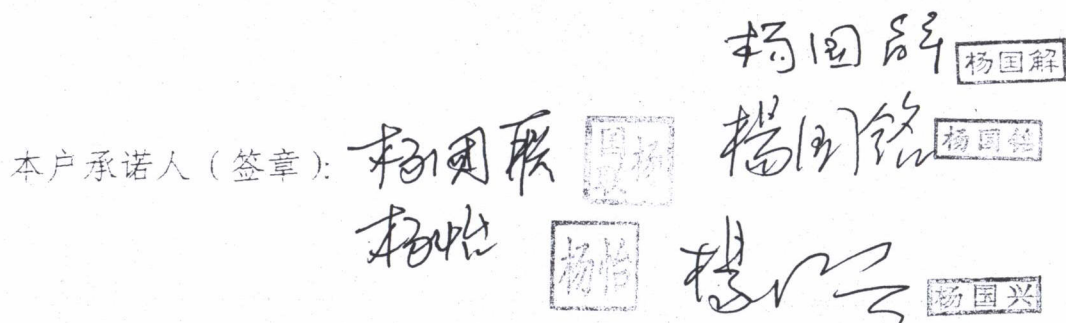 杨国解 杨国解
本户承诺人（签章）: 杨国联 杨国联 楊国铭 杨国铭
杨怡 杨怡 楊国兴 杨国兴